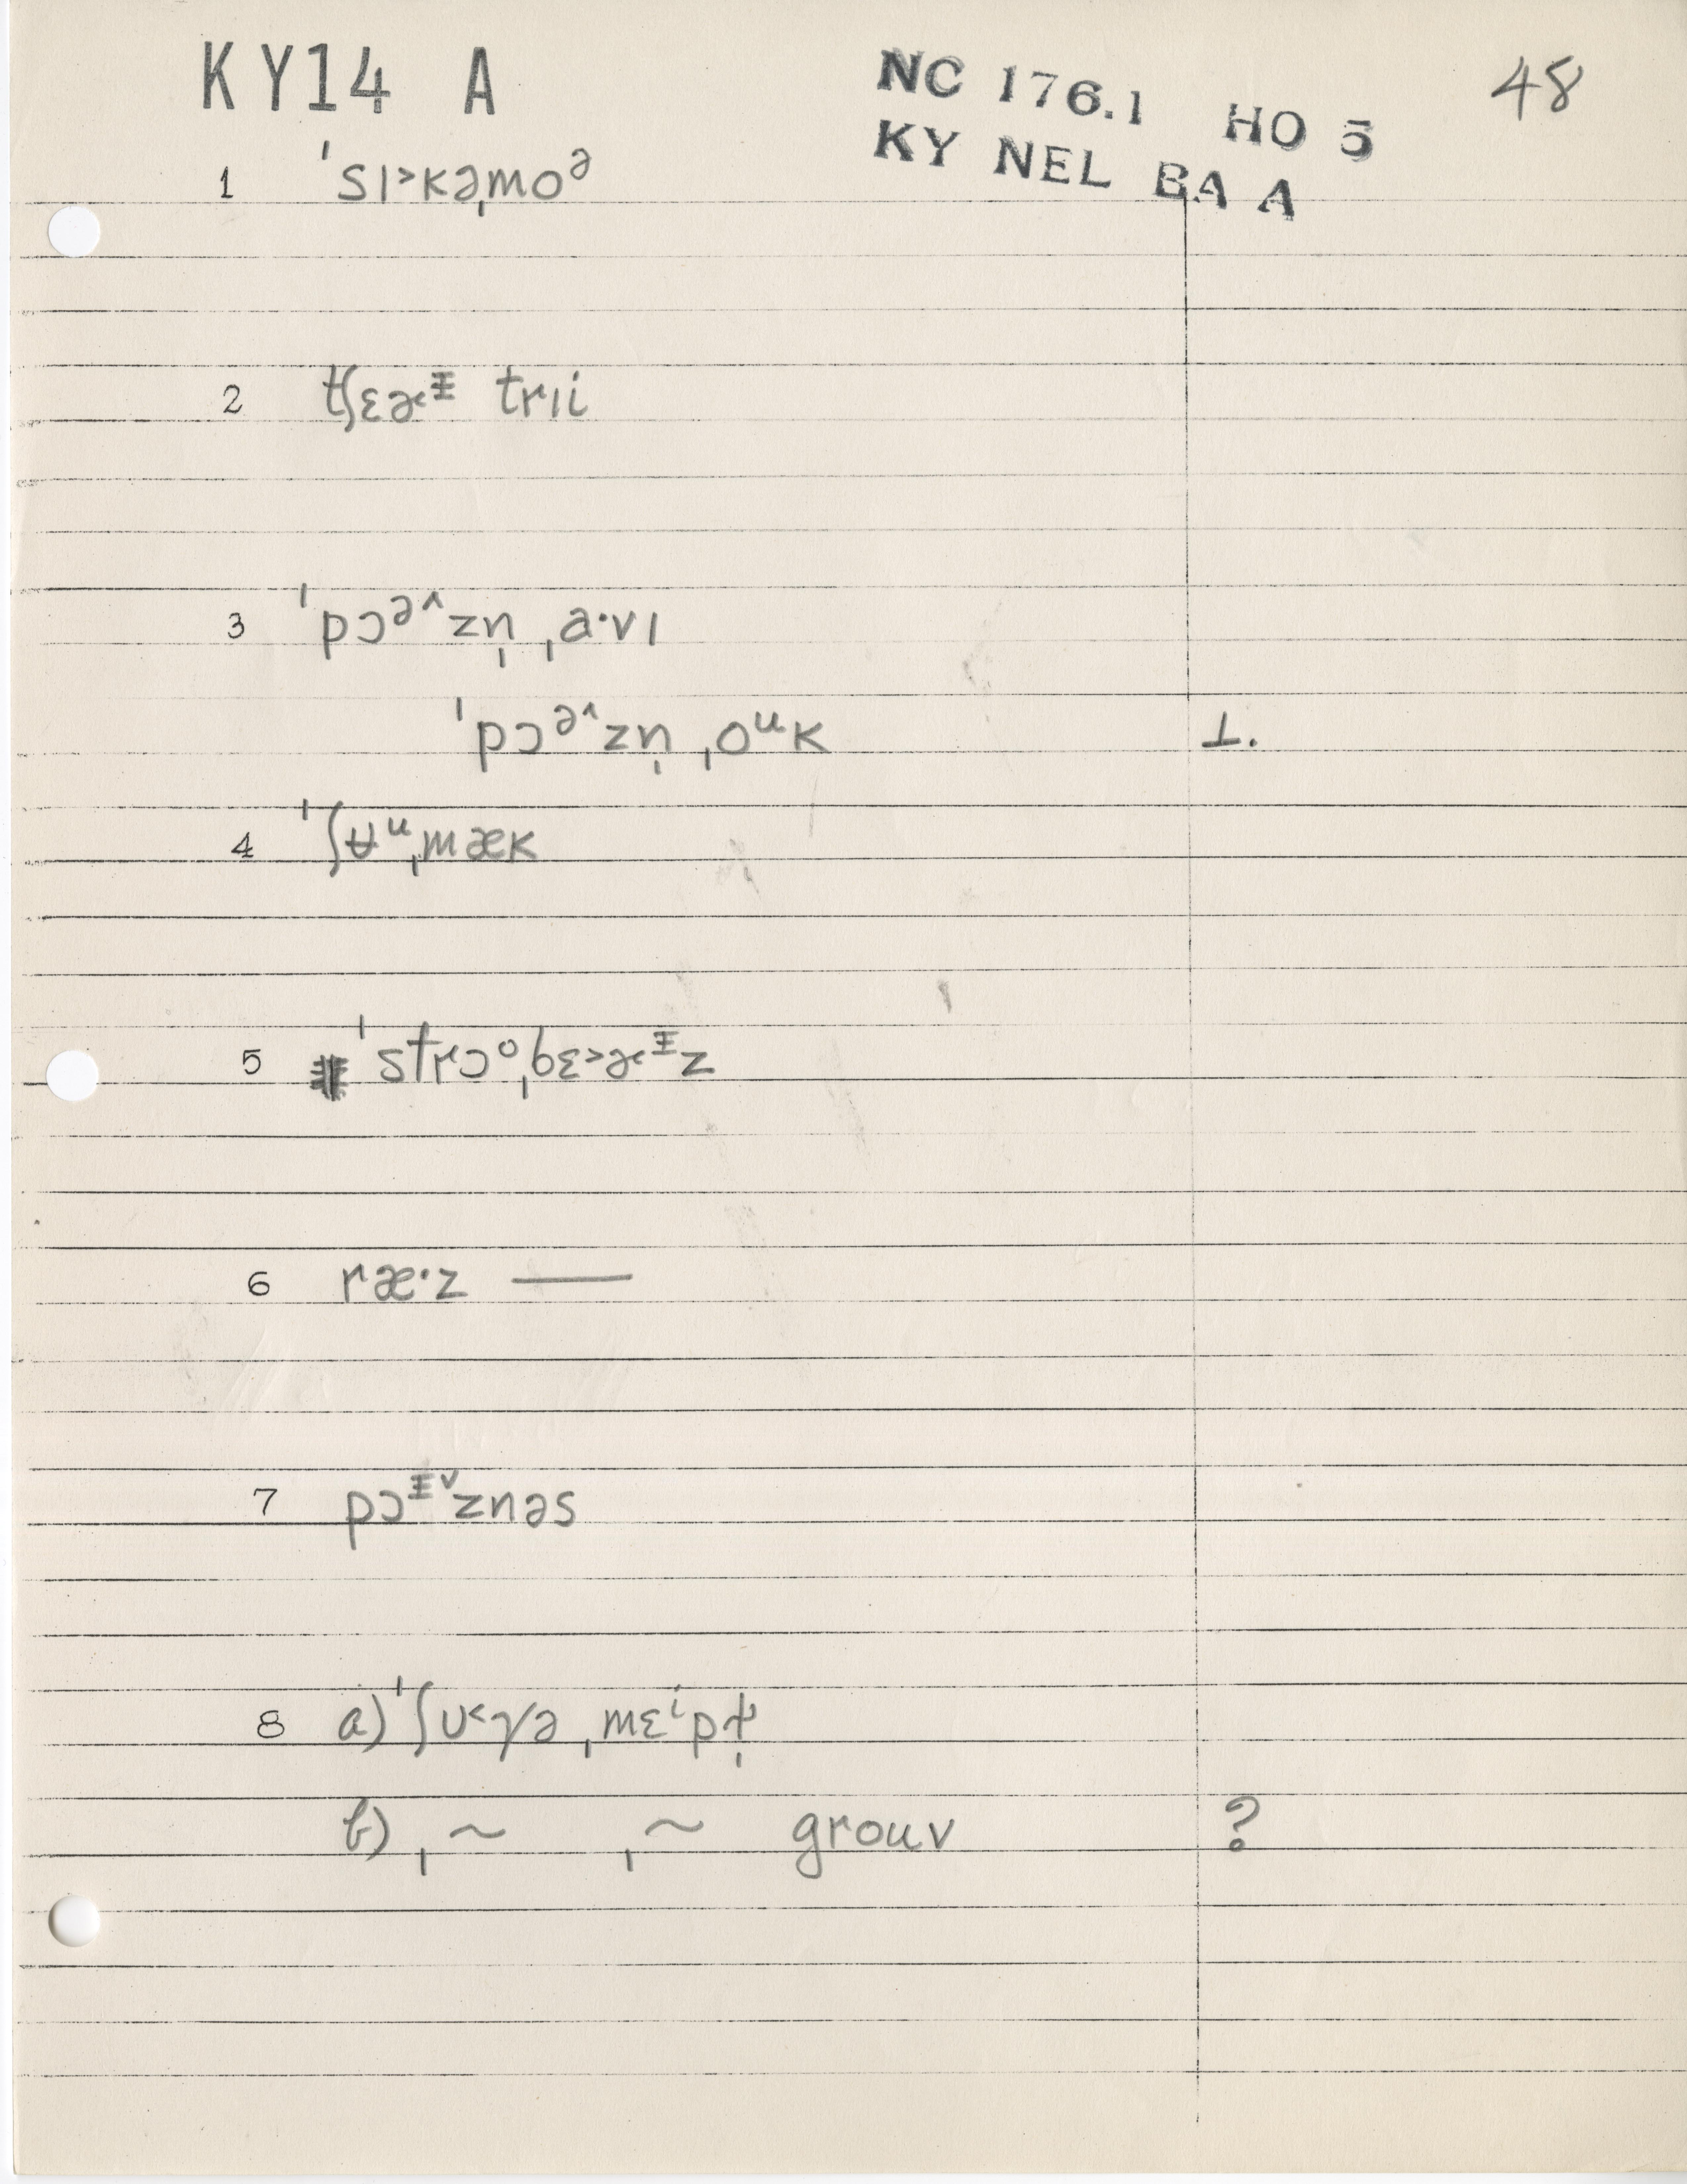 KY14 A
NC 176.1 HO 5
48
KY NEL BA A
1 ˈsɪ˃kəˌmoᵊ
2 tʃɛɚᵻ trɪi
3 ˈpɔᵊ^zn̩ ˌa·vɪ
ˈpɔᵊ^zn̩ ˌoᵘk ⊥.
4 ˈʃʉᵘˌmæk
5 ˈstrɔᵒˌbɛ˃ɚᵻz
6 ræ·z —
7 pɔᵻ˅znəs
8 a) ˈʃᴜ˂ɣə ˌmɛⁱpɫ̩
b) ˌ~ ˌ~ grouv ?